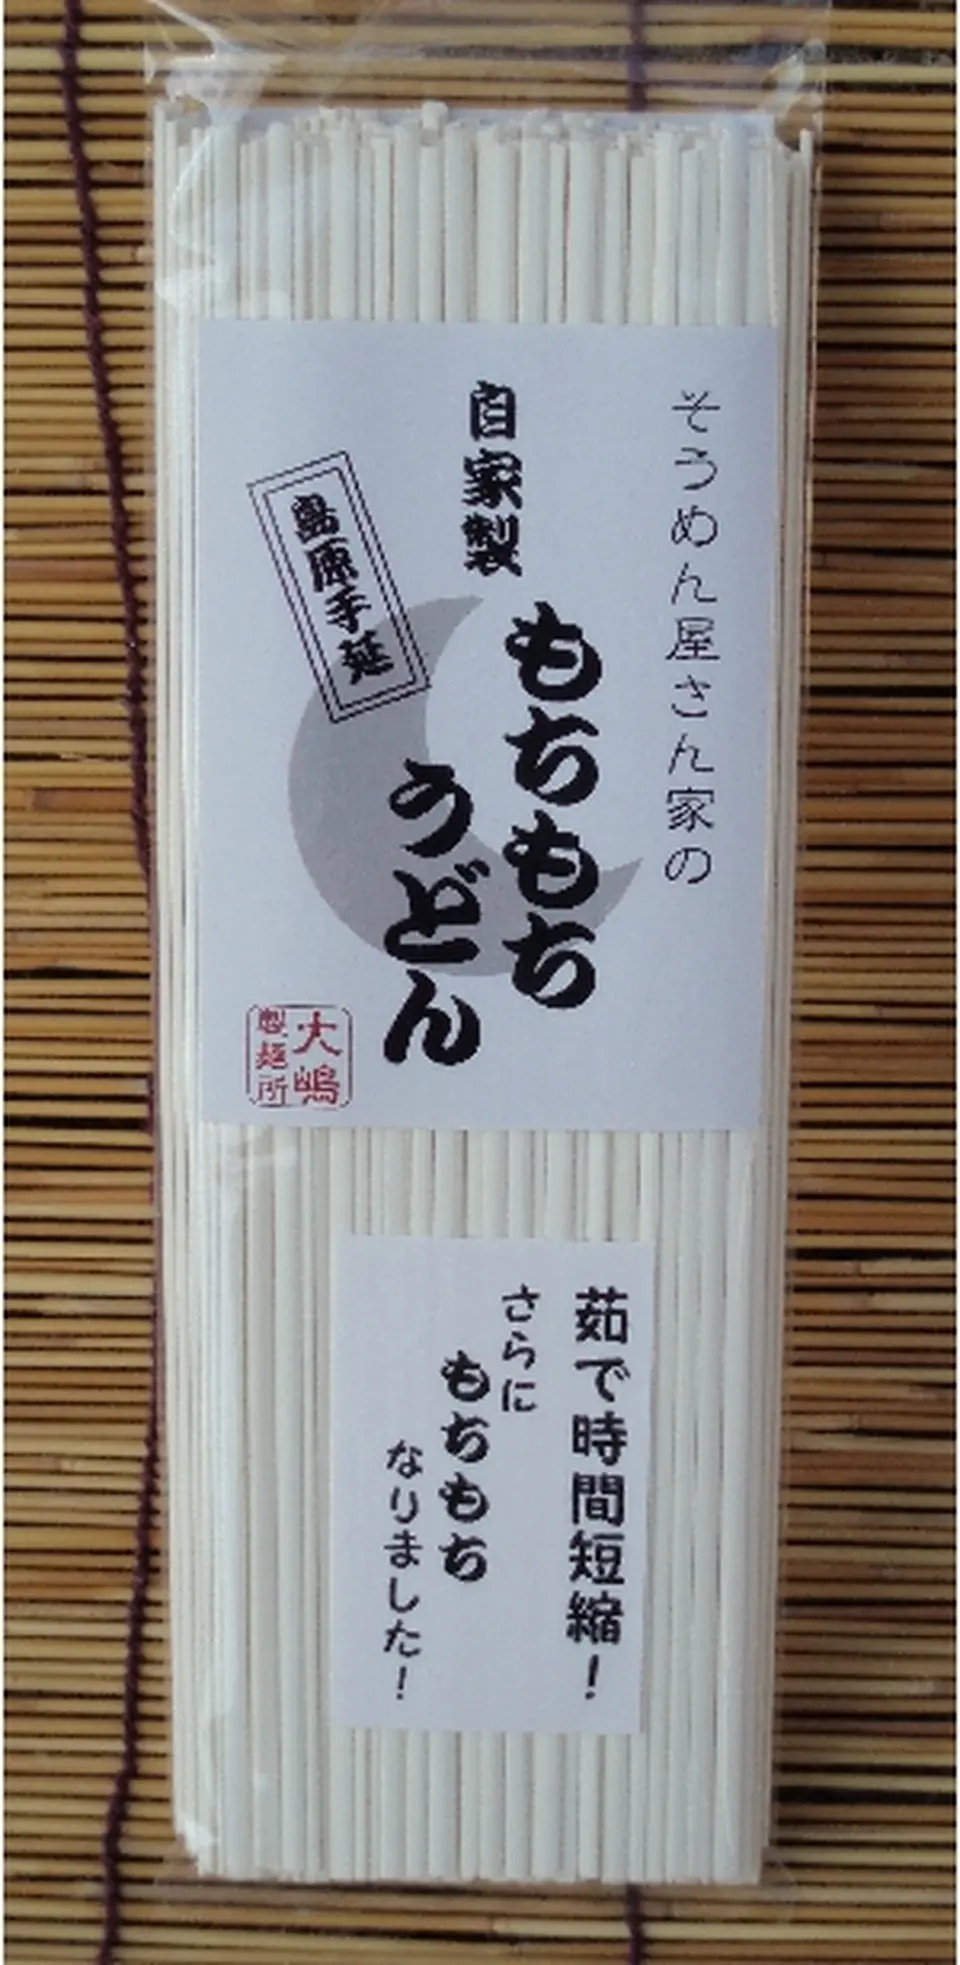 そうめん屋さん家の
自家製
もちもち
うどん
島原手延
大嶋
製麺所
茹で時間短縮!
さらに
もちもち
なりました!